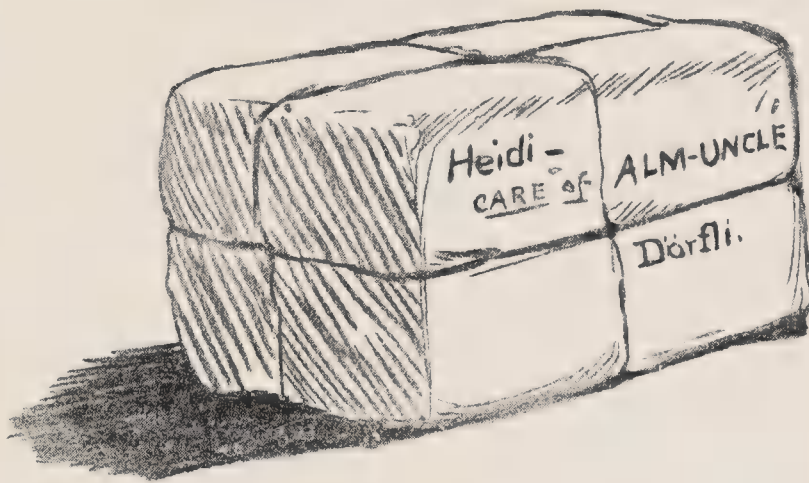 Heidi –
CARE of
ALM-UNCLE
Dörfli.